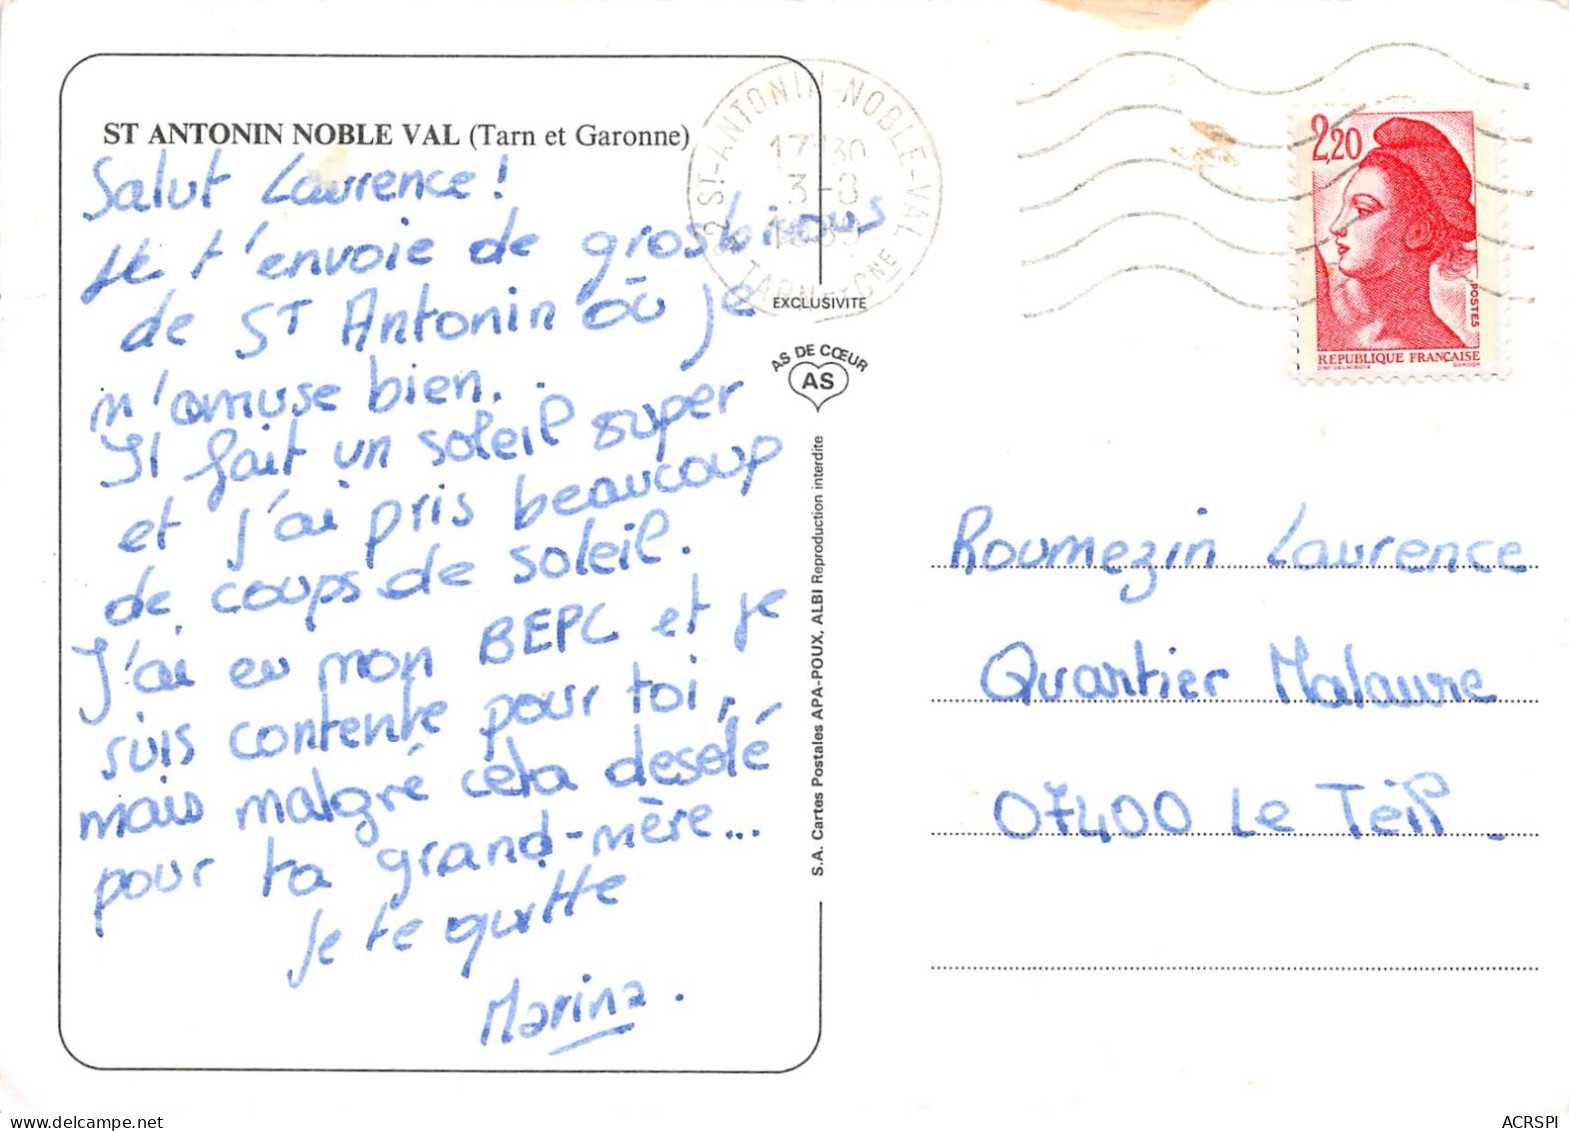 ST ANTONIN NOBLE VAL (Tarn et Garonne)
Salut Laurence !
Je t'envoie de gros bisous
de ST Antonin où je
m'amuse bien.
Il fait un soleil super
et j'ai pris beaucoup
de coups de soleil.
J'ai eu mon BEPC et je
suis contente pour toi,
mais malgré cela desolé
pour ta grand-mère...
je te quitte
Marina.
82 ST-ANTONIN-NOBLE-VAL
17 30
3-8
1989
TARN ET GNE
EXCLUSIVITE
AS DE CŒUR
AS
S.A. Cartes Postales APA-POUX, ALBI Reproduction interdite
2,20
POSTES
REPUBLIQUE FRANÇAISE
Roumezin Laurence
Quartier Malaure
07400 Le Teil
ACRSPI